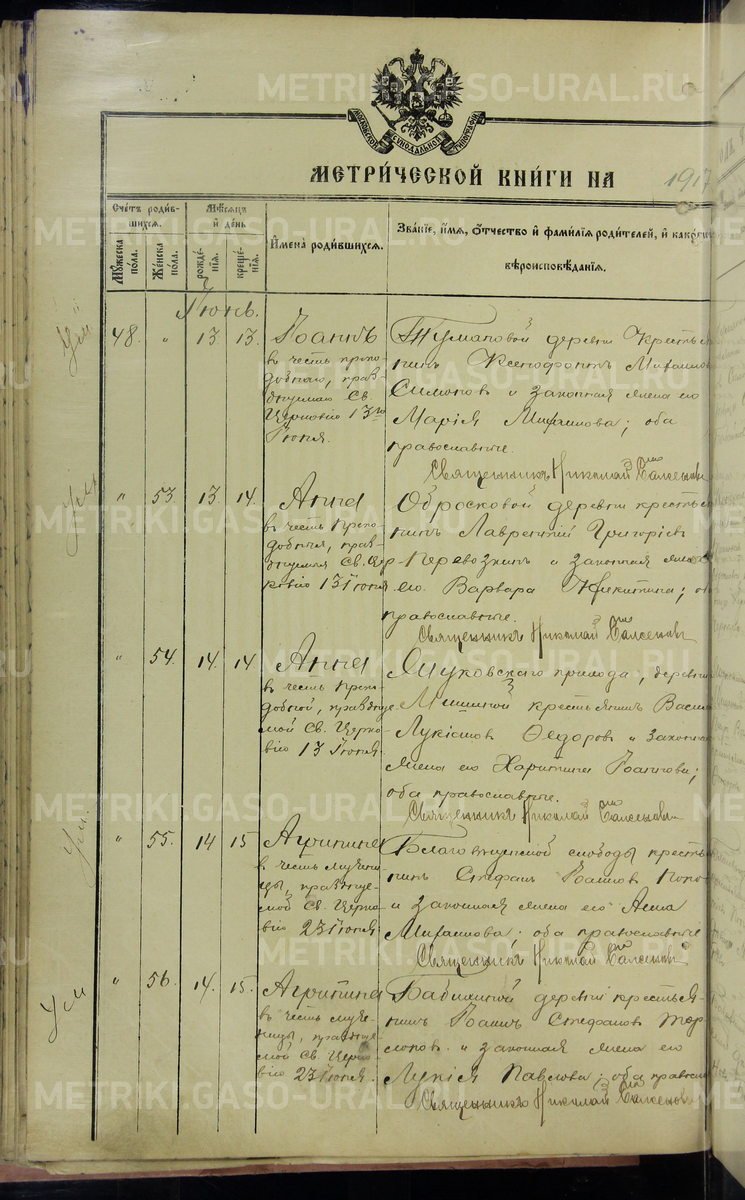 МОСКОВСКОЙ СУНОДАЛЬНОЙ ТИПОГРАФІИ
МЕТРИ́ЧЕСКОЙ КНИ́ГИ НА 1917
Сче́тъ роди́вшихся.
Мѣ́сяцъ и҆ де́нь
Мꙋ́жеска по́ла.
Же́нска по́ла.
рожде́нїѧ.
креще́нїѧ.
И҆мена̀ роди́вшихсѧ.
Зва́нїе, и҆́мѧ, ѻ҆́тчество и҆ фамилїѧ роди́телей, и҆ како́гѡ
вѣроисповѣ́данїѧ.
Іюнь.
Ум
48. " 13 13. Іоаннъ
въ честь препо-
добнаго, праз-
днуемаго Св.
Церковію 13го
Іюня.
Тумановой деревни Кресть
нинъ Ксенофонтъ Михаиловъ
Симоновъ и законная жена его
Марія Михаилова; оба
православные.
Священникъ Николай
" 53 13. 14. Анна
въ честь Препо-
добныя, праз-
днуемыя Св. Цер-
ковію 13 Іюня.
Обросковой деревни кресть
нинъ Лаврентій Григоріевъ
Перевозкинъ и законная жена
его Варвара Никитина;
православные.
Священникъ Николай
" 54. 14. 14 Анна
въ честь Препо-
добной, празднуе-
мой Св. Церко-
вію 13 Іюня.
прихода, деревни
крестьянинъ Васил
Лукіановъ Ѳедоровъ и законна
жена его Харитина Іоаннова;
оба православные.
Священникъ Николай
Ум.
" 55. 14 15 Агрипина
въ честь мучени-
цы, празднуе-
мой Св. Церко-
вію 23 Іюня.
слободы кресть
нинъ Стефанъ Іоанновъ Попо
и законная жена его Анна
Михаилова; оба православные
Священникъ Николай
Ум
" 56 14. 15. Агрипина
въ честь муче-
ницы, празднуе-
мой Св. Церко-
вію 23 Іюня.
Бабиновой деревни крестья-
нинъ Іоаннъ Стефановъ
и законная жена его
Лукія Павлова; оба православ
Священникъ Николай
METRIKI.GASO-URAL.RU